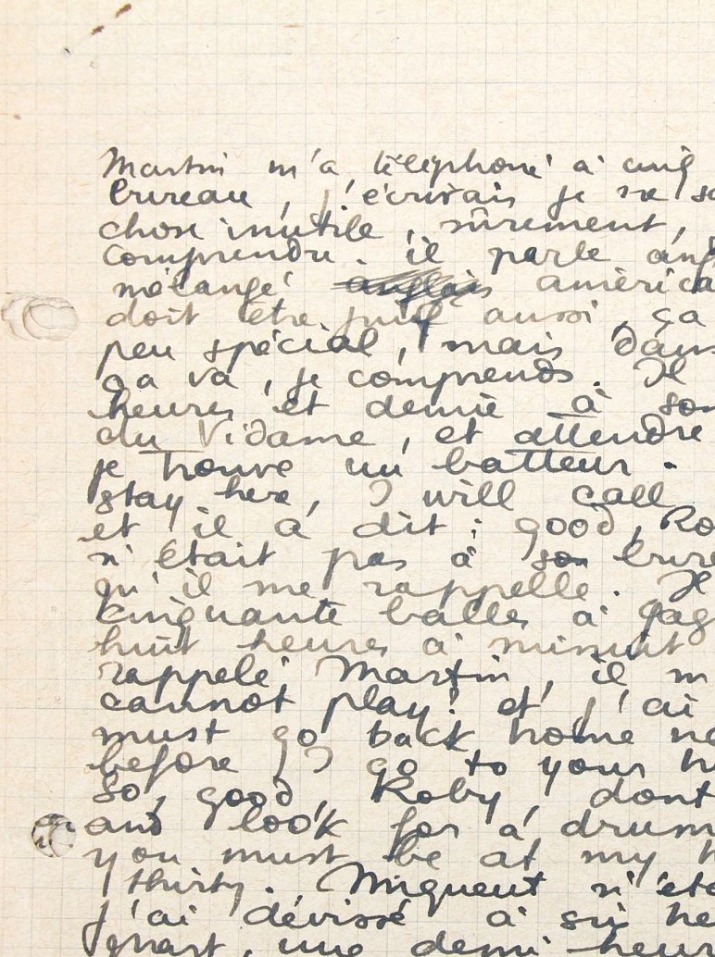 Martin m'a téléphoné à cinq
bureau, j'écrivais je ne s
chose inutile, sûrement,
comprendre. il parle ang
mélangé anglais américa
doit être juif aussi, ça
peu spécial, mais dans
ça va, je comprends. Il
heures et demie à so
du Vidame, et attendre
je trouve un batteur.
stay here, I will call
et il a dit : good, Ro
n'était pas à son bure
qu'il me rappelle. Je
cinquante balles à gag
huit heures à minuit
rappelé Martin, il m
cannot play! et j'ai
must go back home n
before I go to your h
so, good, Roby, dont
and look for a drum
you must be at my h
thirty. Miqueut n'éta
j'ai dévissé à six he
quart, une demi-heur